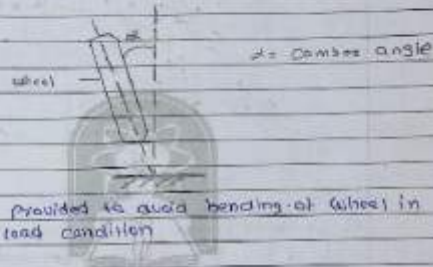 α
α = Camber angle
wheel
Provided to avoid bending of wheel in
load condition